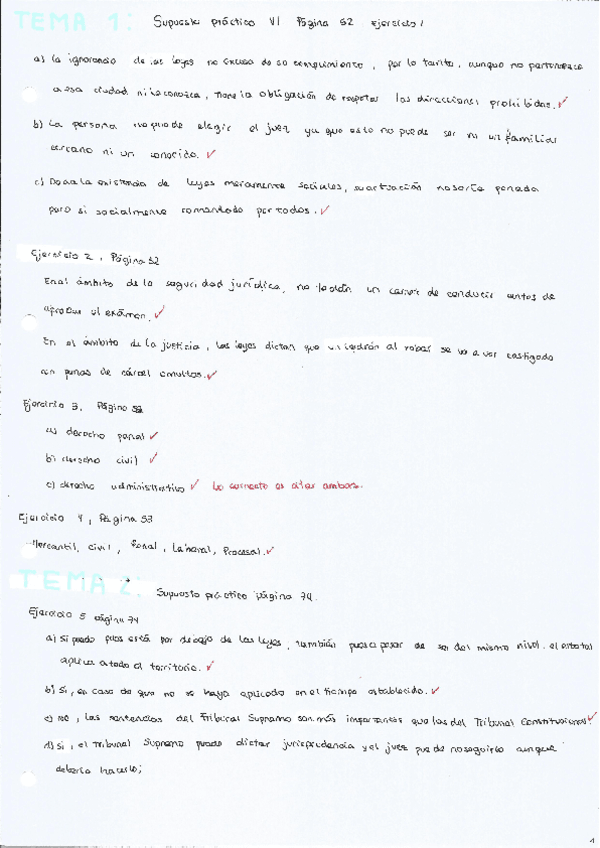 TEMA 1: Supuesto práctico VI Página 52 Ejercicio 1
a) La ignorancia de las leyes no excusa de su cumplimiento, por lo tanto, aunque no pertenezca
a esa ciudad ni la conozca, tiene la obligación de respetar las direcciones prohibidas. ✓
b) La persona no puede elegir el juez ya que este no puede ser ni un familiar
cercano ni un conocido. ✓
c) Dada la existencia de leyes meramente sociales, su actuación no sería penada
pero si socialmente por todos. ✓
Ejercicio 2, Página 52
En el ámbito de la seguridad jurídica, no te dan un carnet de conducir antes de
aprobar el exámen. ✓
En el ámbito de la justicia, las leyes dictan que un ladrón al robar se va a ver castigado
con penas de cárcel o multas. ✓
Ejercicio 3, Página 52
a) derecho penal ✓
b) derecho civil ✓
c) derecho administrativo ✓ Lo correcto es citar ambos.
Ejercicio 4, Página 53
Mercantil, civil, Penal, Laboral, Procesal. ✓
TEMA 2: Supuesto práctico página 74.
Ejercicio 5 página 74
a) Si puede pues está por debajo de las leyes, también puesa pesar de ser del mismo nivel. el estatal
aplica a todo el territorio. ✓
b) Si, en caso de que no se haya aplicado en el tiempo establecido. ✓
c) no, las sentencias del Tribunal Supremo son más importantes que las del Tribunal Constitucional. ✓
d) Si, el Tribunal Supremo puede dictar jurisprudencia y el juez puede no seguirla aunque
debería hacerlo;
1